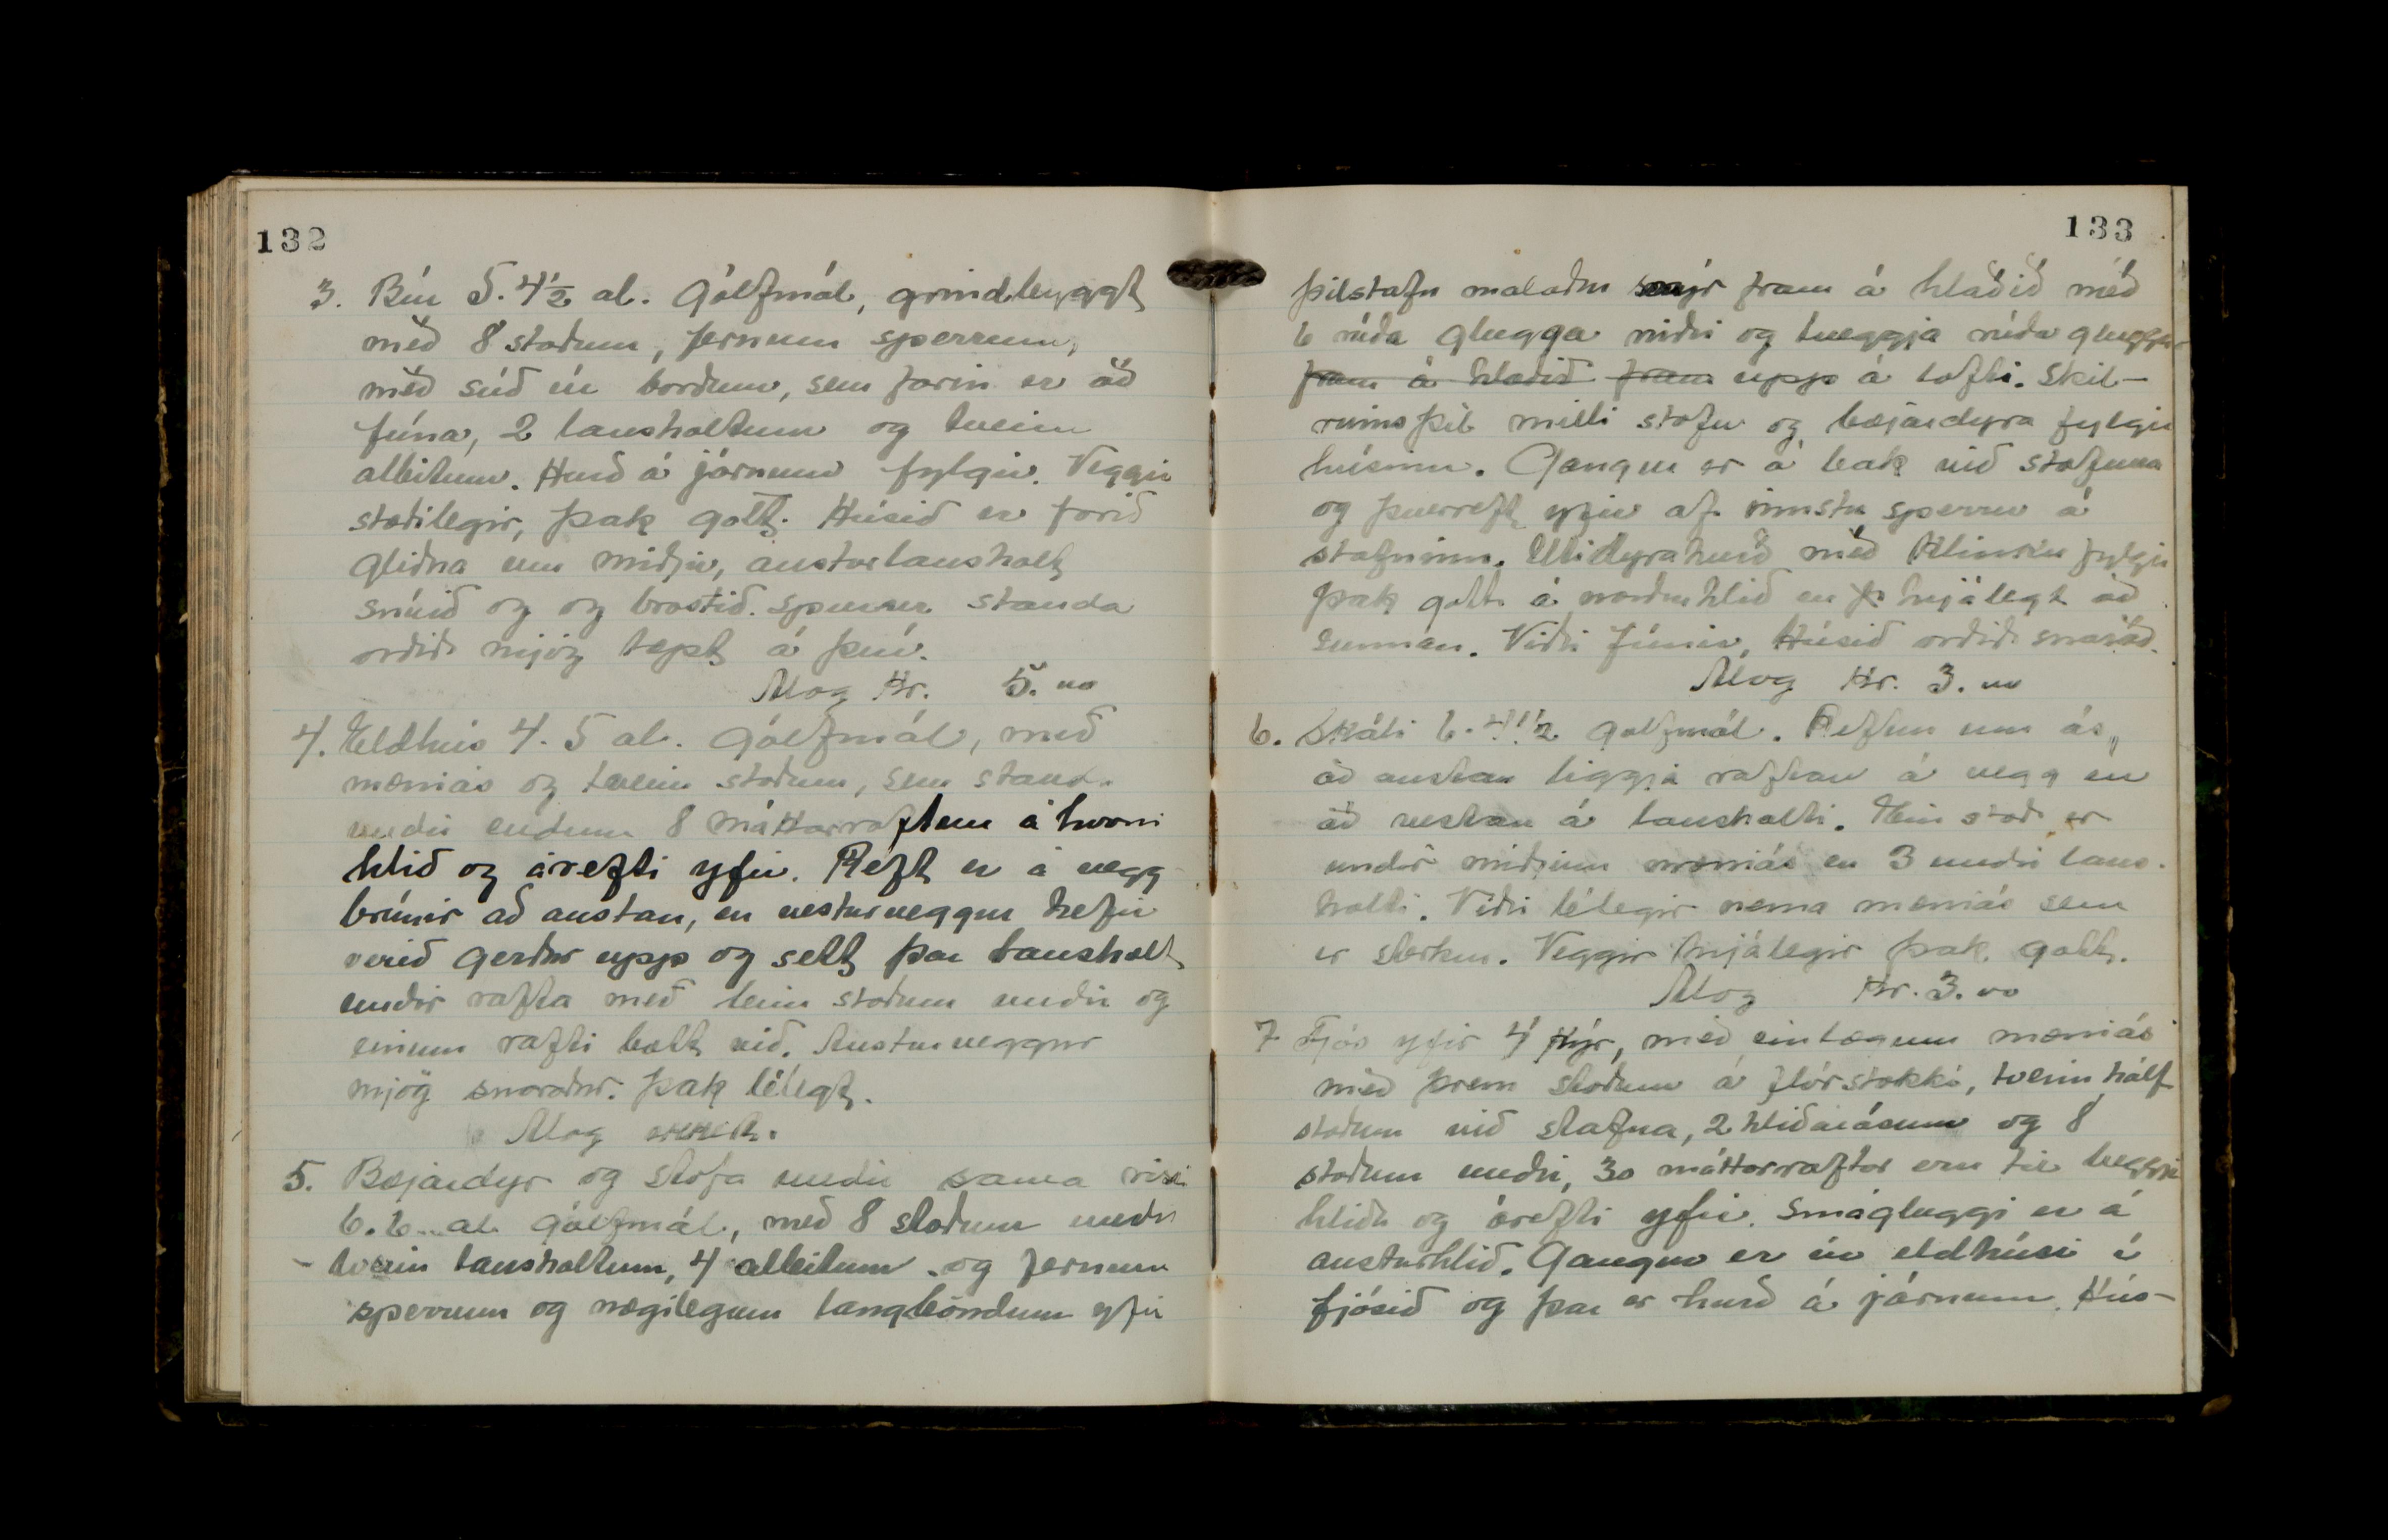 132
3. Búr 5. 4 1/2 al. Gólfmál, grindbyggt
með 8 stoðum, fernum sperrum,
með súð úr borðum, sem farin er að
fúna, 2 lausholtum og tveim
allbitum. Hurð á járnum fylgir. Veggir
stæðilegir, þak gott. Húsið er farið
gliðna um miðju, austurlausholt
snúið og og brostið. Sperrur standa
orðið mjög tæpt á því.
Álag Kr. 5.00
4. Eldhús 4. 5 al. gólfmál, með
mæniás og tveim stoðum, sem stand.
undir endum 8 máttarröftum á hvorri
hlið og árefti yfir. Reft er á vegg
brúnir að austan, en vesturveggur hefir
verið gerður upp og sett þar lausholt
undir rafta með teim stoðum undir og
einum rafti bætt við. Austurveggur
mjög snaraður. Þak lélegt.
Álag ekkert.
5. Bæjardyr og stofa undir sama risi
6. 6 al gólfmál, með 8 stoðum undir
tveim lausholtum, 4 allbitum og fernum
sperrum og nægilegum langböndum yfir
133
þilstafn málaður snýr fram á hlaðið með
6 rúða glugga niðri og tveggja rúða gluggar
fram á hlaðið fram upp á lofti. Skil-
rúmsþil milli stofu og bæjardyra fylgir
húsinu. Gangur er á bak við stofuna
og þverreft yfir af innstu sperru á
stafninn. Útidyrahurð með klinku fylgir
þak gott á norðurhlið en hrjálegt að
sunnan. Viðir fúnir, Húsið orðið snarað.
Álag Kr. 3.00
6. Skáli 6. 4 1/2 gólfmál. Reftur um ás,
að austan liggja raftar á vegg en
að vestan á lausholti. Ein stoð er
undir miðjum mæniás en 3 undir laus-
holti. Viðir lélegir nema mæniás sem
er sterkur. Veggir hrjálegir þak gott.
Álag Kr. 3.00
7 Fjós yfir 4 kýr, með einlægum mæniás
með þrem stoðum á flórstokki, tveim hálf
stoðum við stafna, 2 hliðarásum og 8
stoðum undir, 30 máttarraftar eru til beggja
hliða og árefti yfir. Smágluggi er á
austurhlið. Gangur er úr eldhúsi í
fjósið og þar er hurð á járnum. Hús-